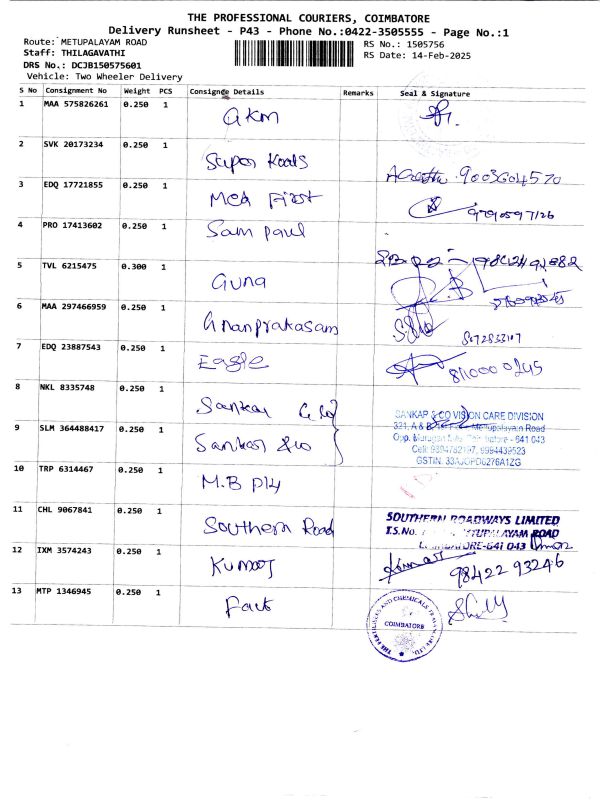 THE PROFESSIONAL COURIERS, COIMBATORE
Delivery Runsheet - P43 - Phone No.:0422-3505555 - Page No.:1
Route: METUPALAYAM ROAD
RS No.: 1505756
Staff: THILAGAVATHI
RS Date: 14-Feb-2025
DRS No.: DCJB150575601
Vehicle: Two Wheeler Delivery
S No Consignment No Weight PCS Consignee Details Remarks Seal & Signature
1 MAA 575826261 0.250 1 akm
2 SVK 20173234 0.250 1 Super
9003604570
3 EDQ 17721855 0.250 1 Med First
4 PRO 17413602 0.250 1 Sam paul
5 TVL 6215475 0.300 1 Guna
6 MAA 297466959 0.250 1 Gnanprakasam
7 EDQ 23887543 0.250 1 Eagle
8 NKL 8335748 0.250 1 Sankar & Co
SANKAR & CO VISION CARE DIVISION
9 SLM 364488417 0.250 1 Sankar & Co
321, A & B Metupalayam Road
Opp. - 641 043
GSTIN. 
10 TRP 6314467 0.250 1 M.B
11 CHL 9067841 0.250 1 Southern Road
SOUTHERN ROADWAYS LIMITED
T.S.No. METUPALAYAM ROAD
COIMBATORE-641 043
12 IXM 3574243 0.250 1 Kumar
98422 93246
13 MTP 1346945 0.250 1 Fact
COIMBATORE